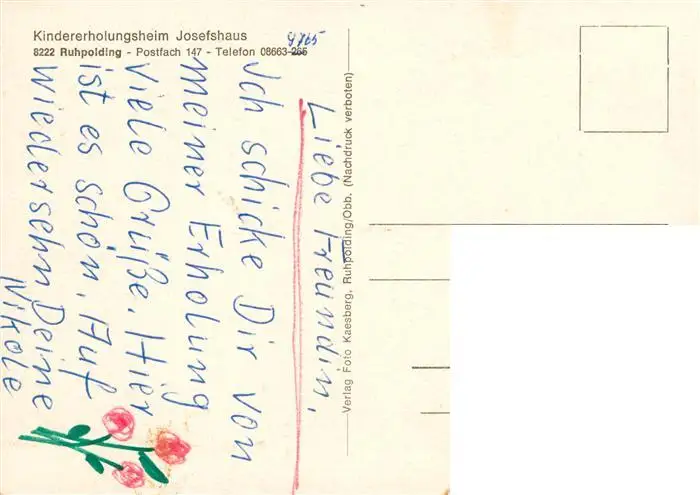 Kindererholungsheim Josefshaus
8222 Ruhpolding - Postfach 147 - Telefon 08663-265
Liebe Freundin,
Ich schicke Dir von
meiner Erholung
viele Grüße. Hier
ist es schön. Auf
wiedersehn Deine
Nikole
Verlag Foto Kaesberg, Ruhpolding/Obb. (Nachdruck verboten)